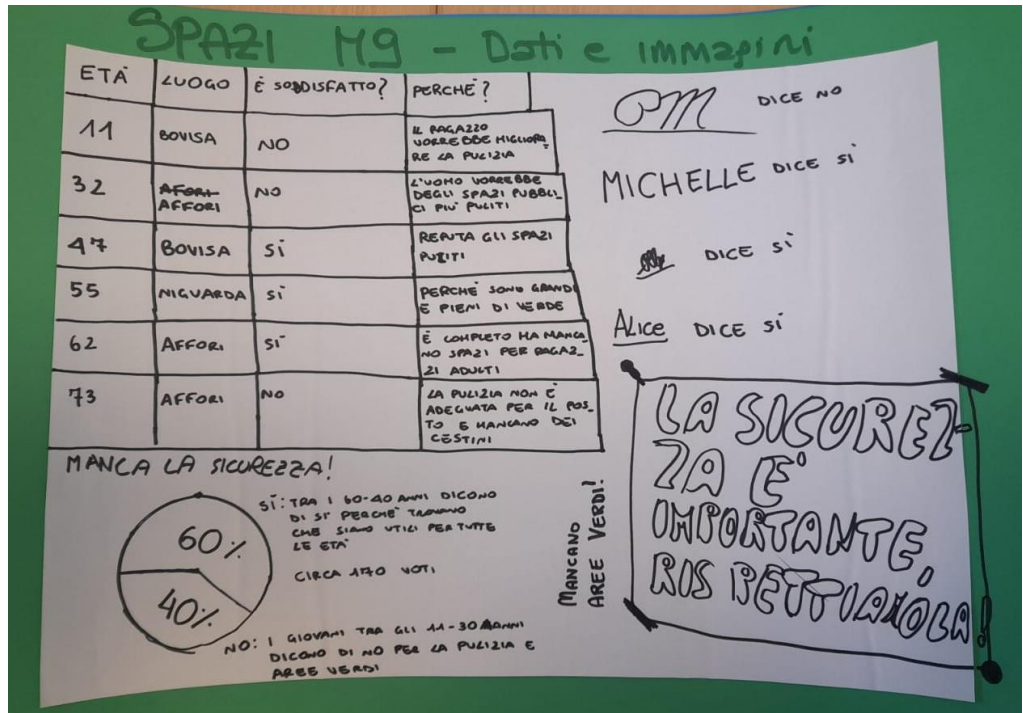 SPAZI M9 - Dati e immagini
ETÀ LUOGO È SODDISFATTO? PERCHÉ?
11 BOVISA NO IL RAGAZZO
VORREBBE MIGLIORA_
RE LA PULIZIA
32 AFFORI NO L'UOMO VORREBBE
DEGLI SPAZI PUBBLI_
CI PIU' PULITI
47 BOVISA SÌ REPUTA GLI SPAZI
PULITI
55 NIGUARDA SÌ PERCHÉ SONO GRANDI
E PIENI DI VERDE
62 AFFORI SÌ È COMPLETO MA MANCA_
NO SPAZI PER RAGAZ_
ZI ADULTI
73 AFFORI NO LA PULIZIA NON È
ADEGUATA PER IL POS_
TO E MANCANO DEI
CESTINI
PM DICE NO
MICHELLE DICE SÌ
DICE SÌ
ALICE DICE SÌ
MANCA LA SICUREZZA!
60%
40%
SÌ: TRA I 60-40 ANNI DICONO
DI SI' PERCHÉ TROVANO
CHE SIANO UTILI PER TUTTE
LE ETÀ
CIRCA 170 VOTI
NO: I GIOVANI TRA GLI 11-30 ANNI
DICONO DI NO PER LA PULIZIA E
AREE VERDI
MANCANO
AREE VERDI!
LA SICUREZ-
ZA E'
IMPORTANTE,
RISPETTIAMOLA!